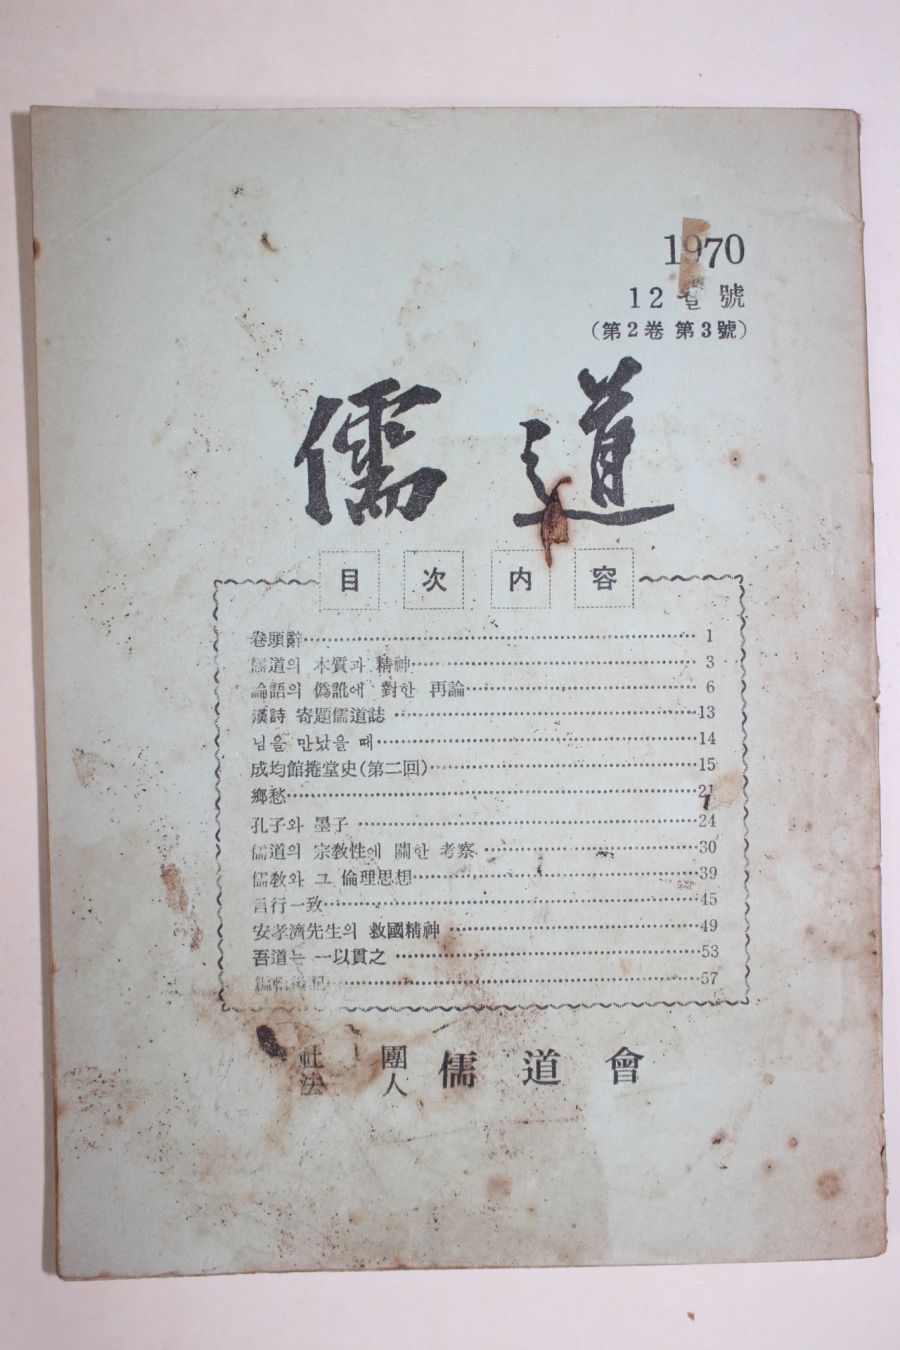 1970
12월 號
(第2卷 第3號)
儒道
目次内容
卷頭辭 1
儒道의 本質과 精神 3
論語의 僞訛에 對한 再論 6
漢詩 寄題儒道誌 13
님을 만났을 때 14
成均館捲堂史(第二回) 15
鄕愁 21
孔子와 墨子 24
儒道의 宗教性에 關한 考察 30
儒敎와 그 倫理思想 39
言行一致 45
安孝濟先生의 救國精神 49
吾道는 一以貫之 53
編輯後記 57
社團法人 儒道會